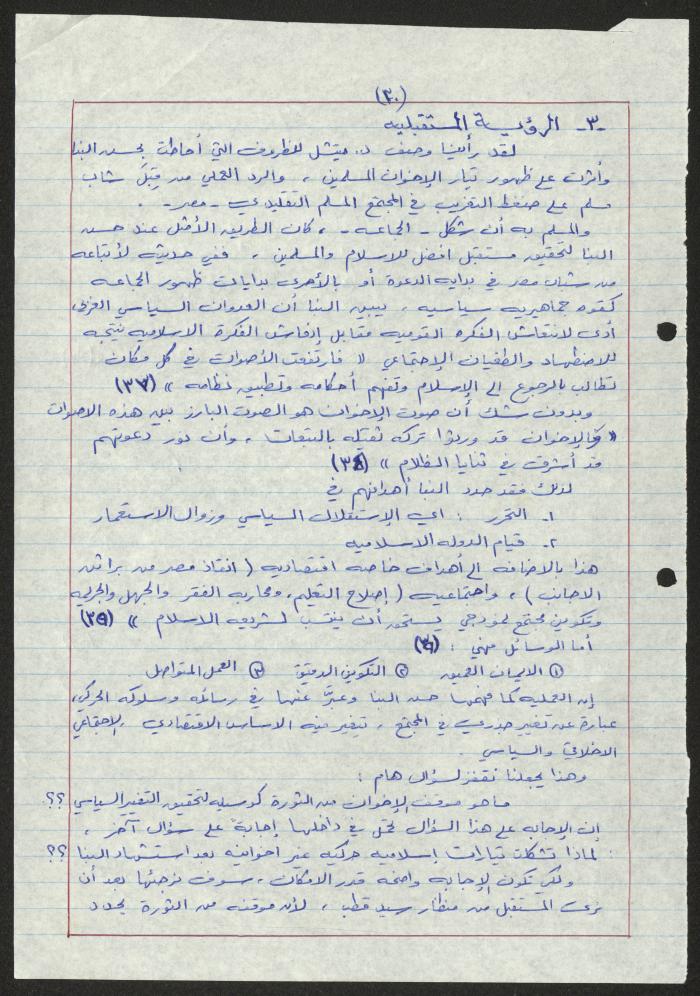 (٣٠)
-٣- الرؤية المستقبلية
لقد رأينا وصف د. ميتشل للظروف التي أحاطت بحسن البنا
وأثرت على ظهور تيار الإخوان المسلمين ، والرد العملي من قِبَل شاب
مسلم على ضغط التغريب في المجتمع المسلم التقليدي - مصر - .
والمسلم به أن شكل - الجماعه - ، كان الطريق الأمثل عند حسن
البنا لتحقيق مستقبل افضل للاسلام والمسلمين ، ففي حديثه لأتباعه
من شباب مصر في بدايه الدعوة أو بالأحرى بدايات ظهور الجماعه
كقوه جماهيريه سياسيه ، يبين البنا أن العدوان السياسي الغربي
أدى لانتعاش الفكره القوميه مقابل إنتعاش الفكرة الاسلاميه نتيجه
للاضطهاد والطغيان الإجتماعي « فارتفعت الأصوات في كل مكان
تطالب بالرجوع الى الإسلام وتفهم أحكامه وتطبيق نظامه » (٣٧)
وبدون شك أن صوت الإخوان هو الصوت البارز بين هذه الاصوات
« فالإخوان قد ورثوا تركه ثقيله بالتبعات ، وأن نور دعوتهم
قد أشرق في ثنايا الظلام » (٣٨)
لذلك فقد حدد البنا أهدافهم في
١. التحرر : اي الإستقلال السياسي وزوال الاستعمار
٢. قيام الدوله الاسلاميه
هذا بالاضافه الى أهداف خاصه اقتصاديه ( انقاذ مصر من براثن
الاجانب ) ، واجتماعيه ( إصلاح التعليم، ومحاربه الفقر والجهل والجريمه
وتكوين مجتمع نموذجي يستحق أن ينتسب لشريعه الاسلام » (٣٩)
أما الوسائل فهي :
① الايمان العميق ② التكوين الدقيق ③ العمل المتواصل
إن العمليه كما فهمها حسن البنا وعبَّر عنها في رسائله وسلوكه الحركي،
عبارة عن تغيير جذري في المجتمع ، تتغير فيه الاسس الاقتصادي والإجتماعي
الاخلاقي والسياسي .
وهذا يجعلنا نقفز لسؤال هام :
ما هو موقف الإخوان من الثورة كوسيله لتحقيق التغيير السياسي ؟؟
إن الإجابه على هذا السؤال تحمل في داخلها إجابة على سؤال آخر ،
: لماذا تشكلت تيارات إسلاميه حركيه غير اخوانيه بعد استشهاد البنا ؟؟
ولكي تكون الإجابه واضحه قدر الامكان ، سوف نرجئها بعد أن
نرى المستقبل من منظار سيد قطب ، لأن موقفه من الثورة يحدد